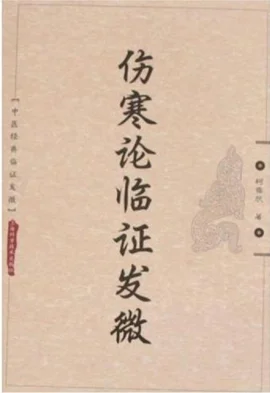 伤寒论临证发微
【中医经典临证发微】
著